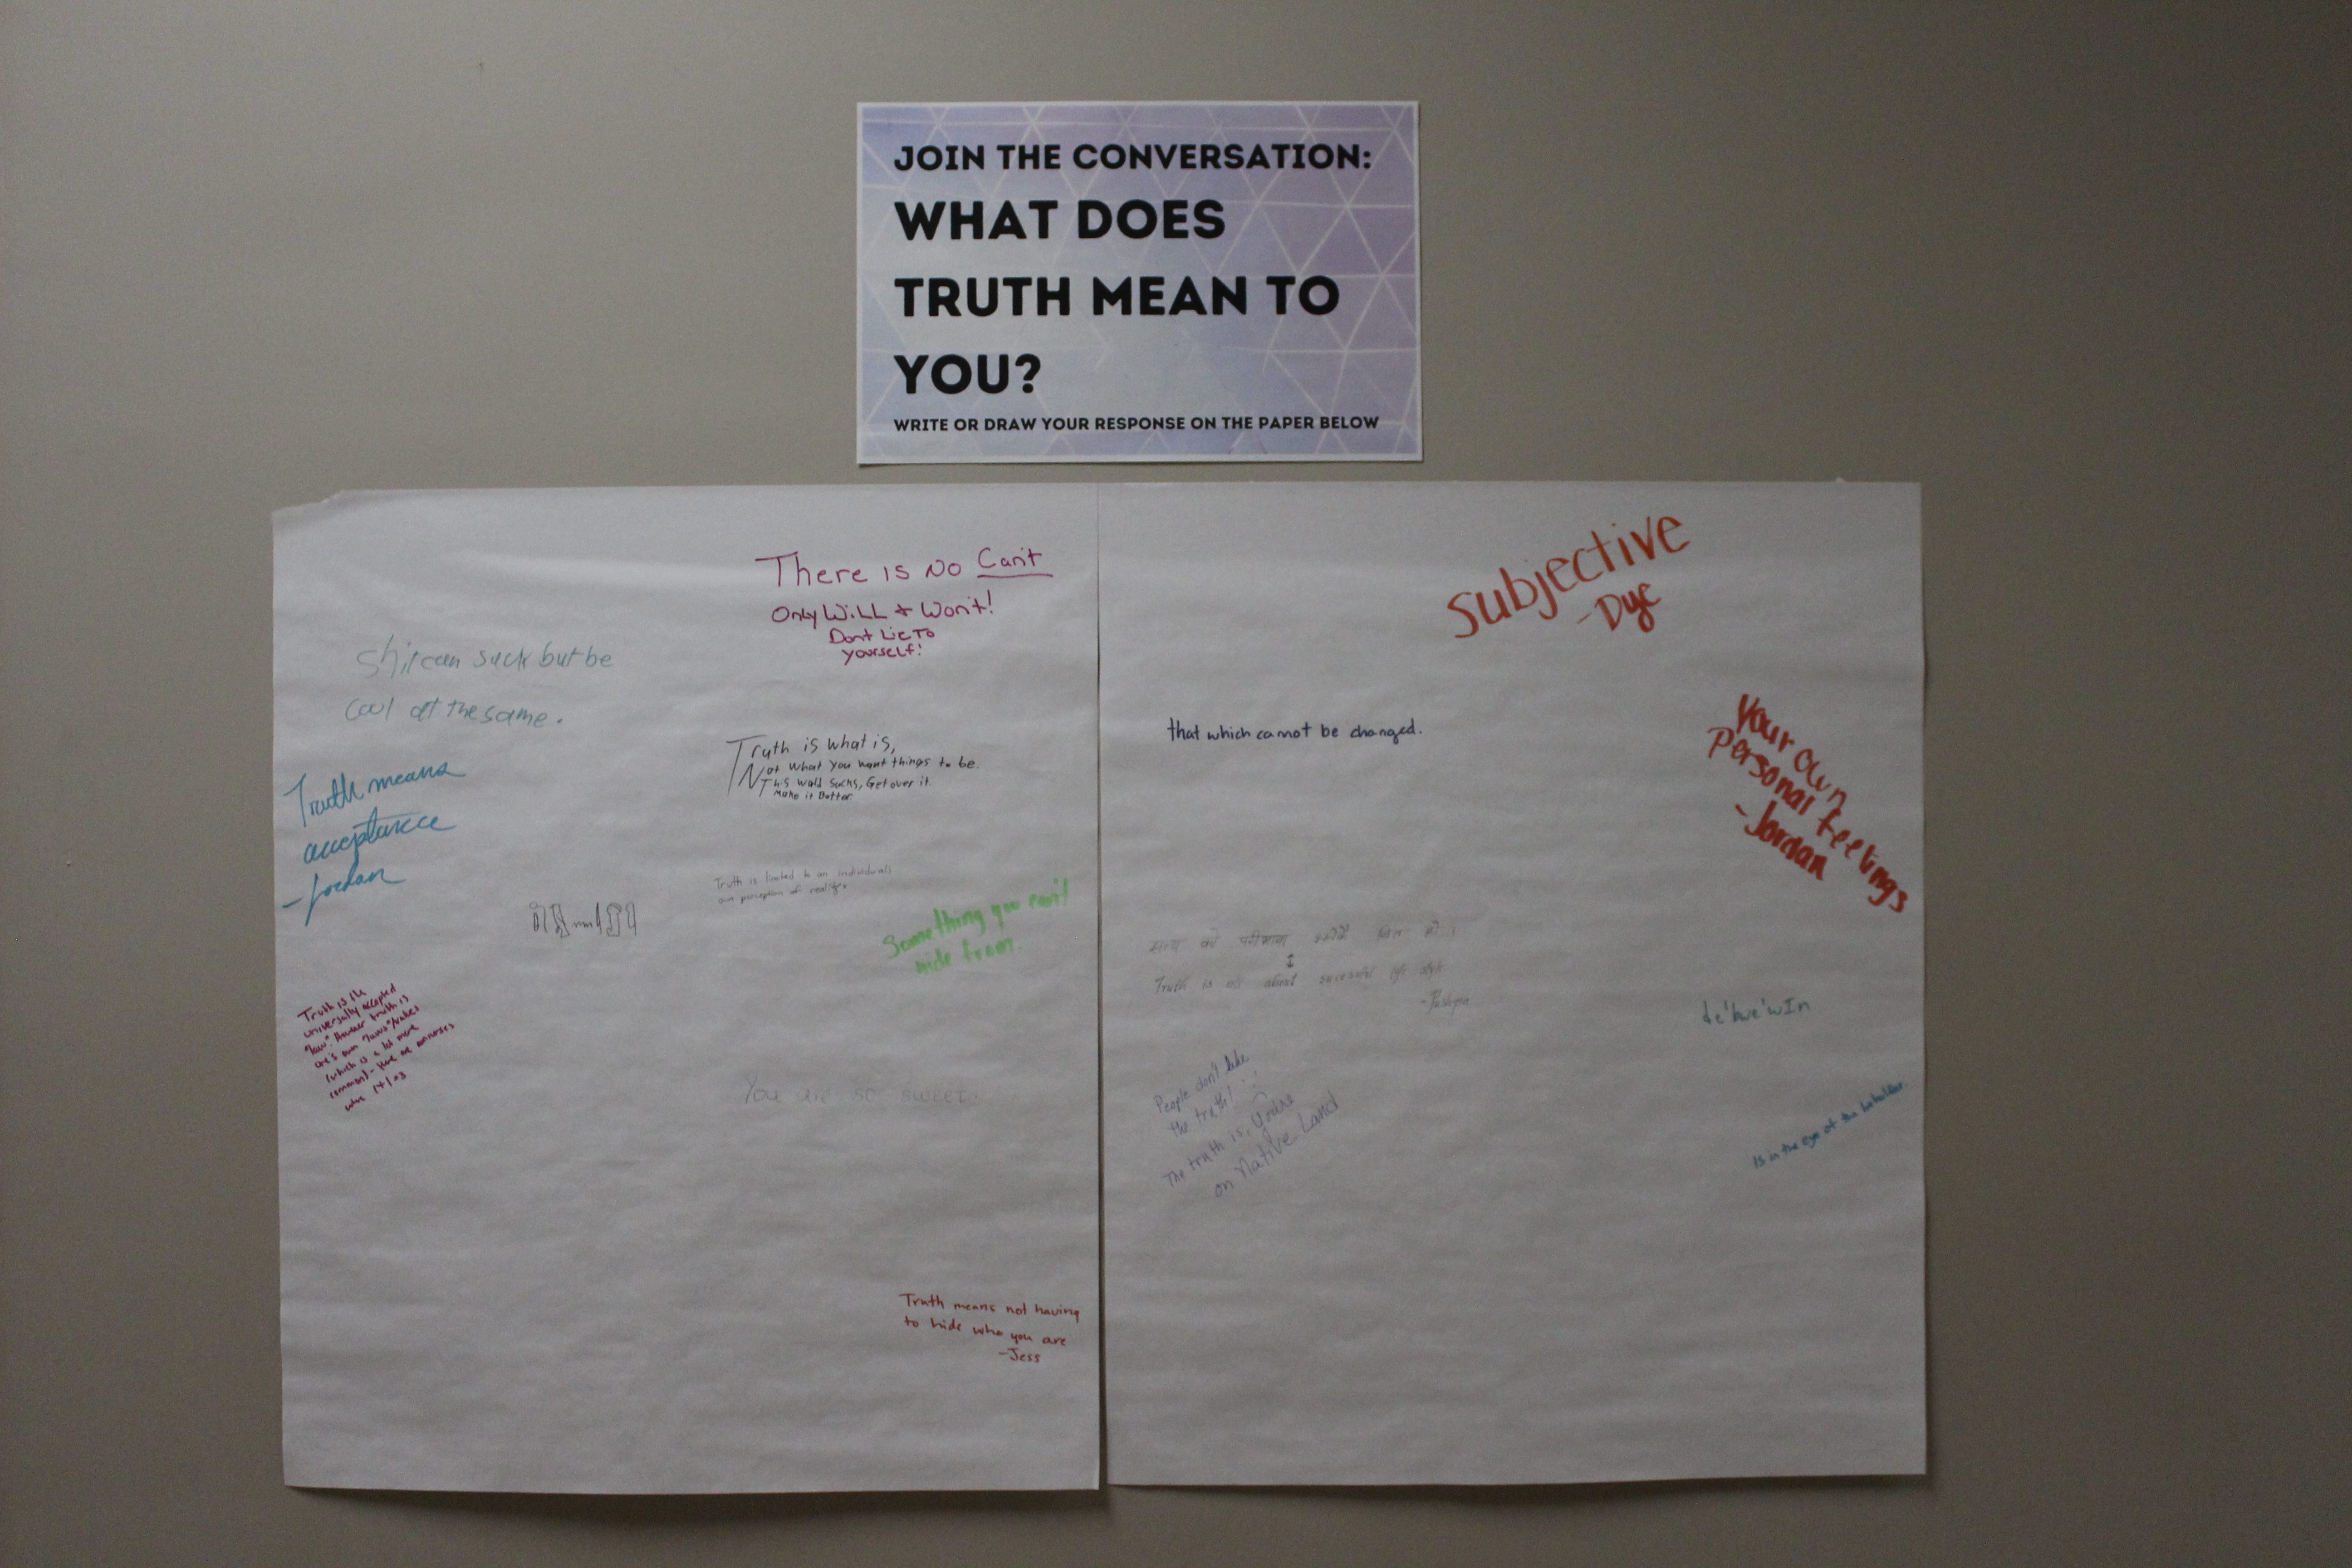 JOIN THE CONVERSATION:
WHAT DOES
TRUTH MEAN TO
YOU?
WRITE OR DRAW YOUR RESPONSE ON THE PAPER BELOW
There is No Can't
Only Will + Won't!
Don't Lie To
Yourself!
Shit can suck but be
cool at the same.
Truth is what is,
Not what you want things to be.
This world sucks, Get over it.
Make it Better.
Truth means
acceptance
- Jordan
Truth is limited to an individuals
own perception of reality.
Something you can't
hide from.
Truth is the
universally accepted
"law". However truth is
one's own "laws"/values
(which is a lot more
common) -
14/03
You are so sweet.
Truth means not having
to hide who you are
-Jess
Subjective
- Dyc
that which cannot be changed.
Your own
Personal feelings
- Jordan
Truth is all about sucessful life style.
te'bwe'wIn
People don't like
the truth!
The truth is, you're
on Native Land
is in the eye of the beholder